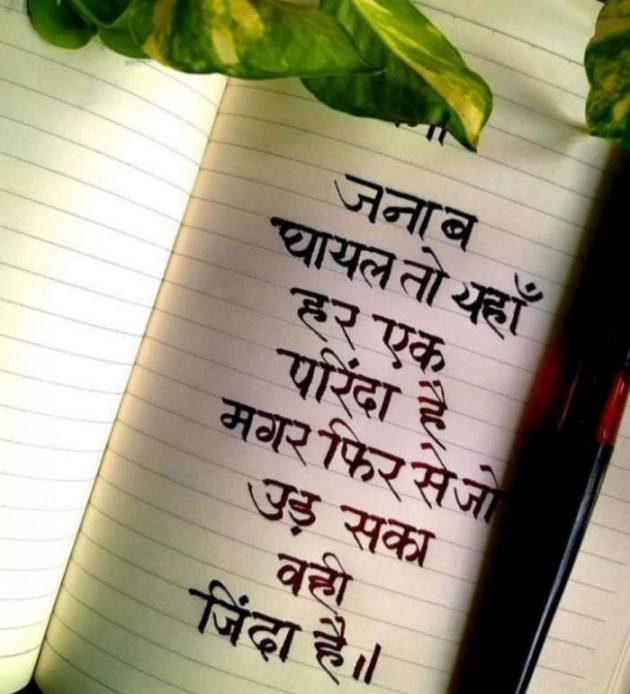 जनाब
घायल तो यहाँ
हर एक
परिंदा है
मगर फिर से जो
उड़ सका
वही
जिंदा है।।